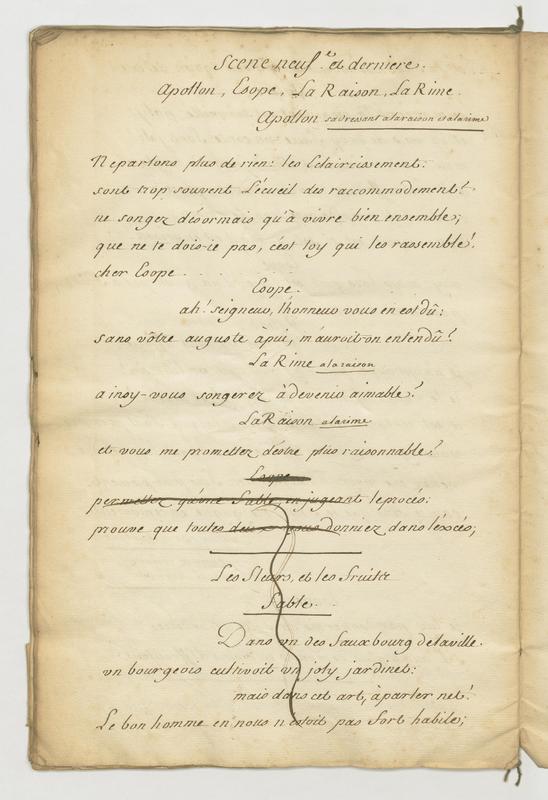 Scene neuf.e et derniere.
Apollon, Esope, La Raison, La Rime.
Apollon s'adressant a la raison et a la rime
Ne parlons plus de rien: les Eclaircissement.s
sont trop souvent L'écueil des raccommodement.s
ne songez désormais qu'à vivre bien ensemble;
que ne te dois-ie pas, c'est toy qui les rassemble!
cher Esope . . . .
Esope.
ah! seigneur, l'honneur vous en est dû:
sans vôtre auguste àpui, m'auroit-on entendû?
La Rime a la raison
ainsy-vous songerez à devenir aimable?
La Raison a la rime
et vous me promettez d'éstre plus raisonnable?
Esope
permettez qu'une Fable, en jugeant le procés:
prouve que toutes deux vous donniez dans l'éxcés;
Les Fleurs, et les Fruits
Fable.
Dans un des Fauxbourg de la ville.
un bourgeois cultivoit un joly jardinet:
mais dans cet art, à parler net!
Le bon homme en nous n'étoit pas Fort habile;